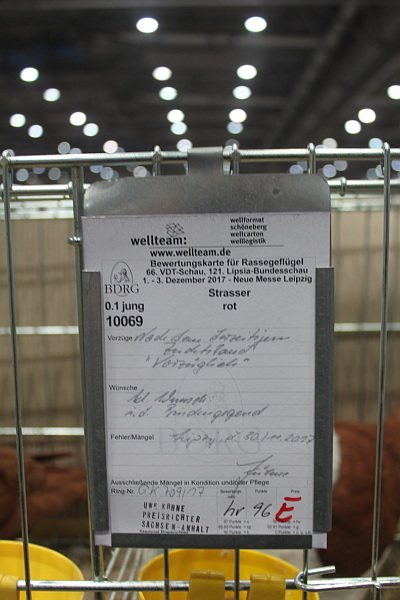 wellteam:
wellformat
schöneberg
wellcarton
welllogistik
www.wellteam.de
Bewertungskarte für Rassegeflügel
66. VDT-Schau, 121. Lipsia-Bundesschau
1. - 3. Dezember 2017 - Neue Messe Leipzig
BDRG
Strasser
0.1 jung rot
10069
Vorzüge Nach dem derzeitigen
Zuchtstand
"Vorzüglich"
Wünsche
Fehler/Mängel Leipzig, d. 30/11.2017
Ausschließende Mängel in Kondition und/oder Pflege
Ring-Nr. GK 709/17
Punkte Preis
hv 96 E
UWE KÖHNE
PREISRICHTER
SACHSEN-ANHALT